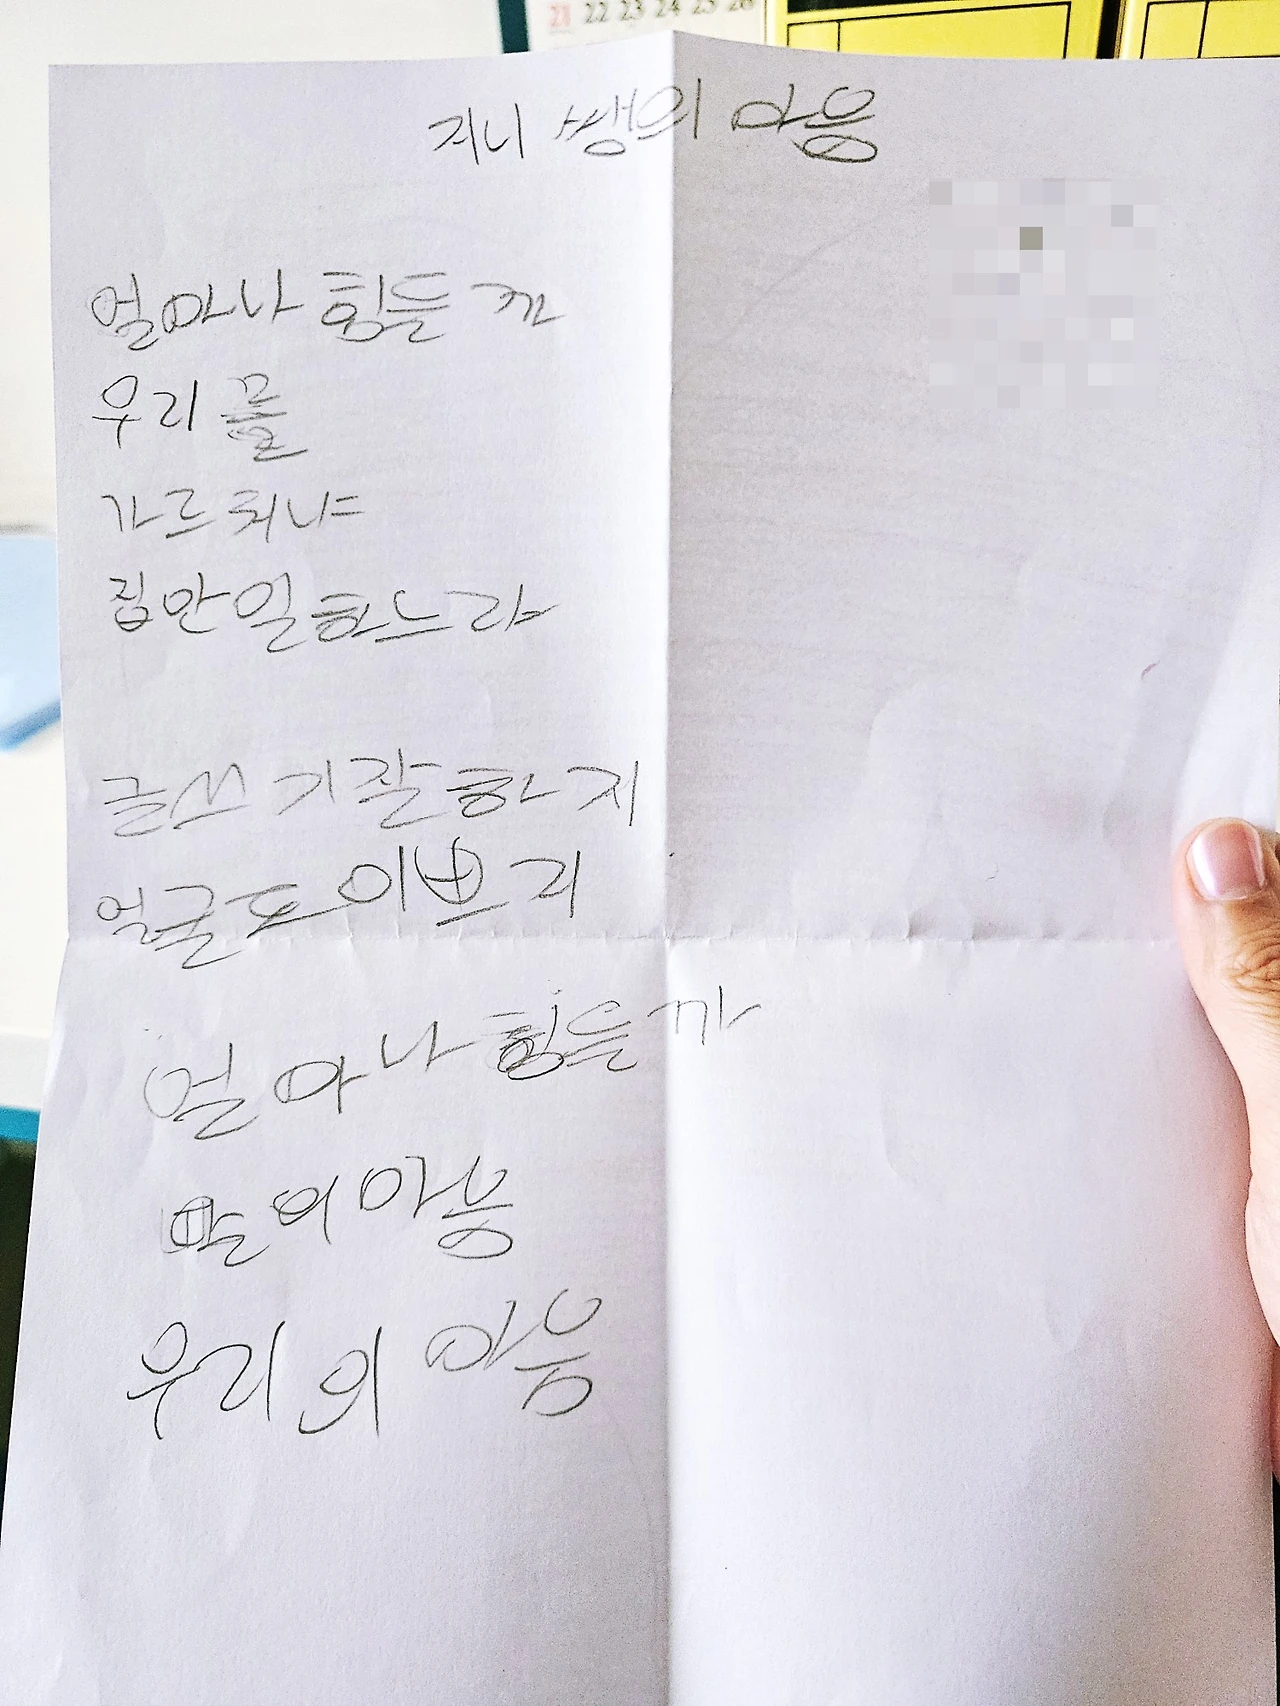 21 22 23 24 25 26
지니 쌩의 마음
얼마나 힘든 까
우리를
가르취냐
집안일하느라
글쓰기잘하지
얼굴도이쁘지
얼마나 힘든까
의마음
우리의 마음